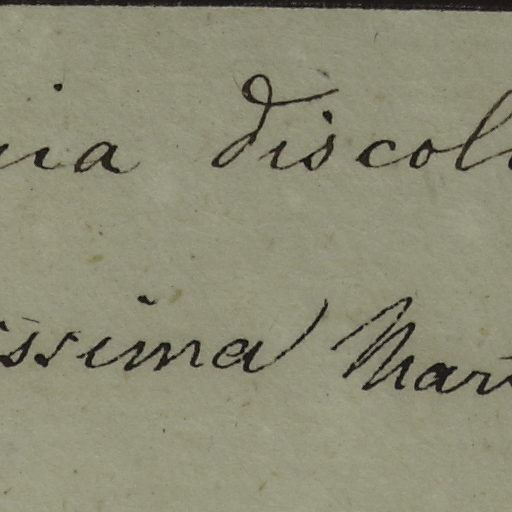 uia discol
issima) Mart